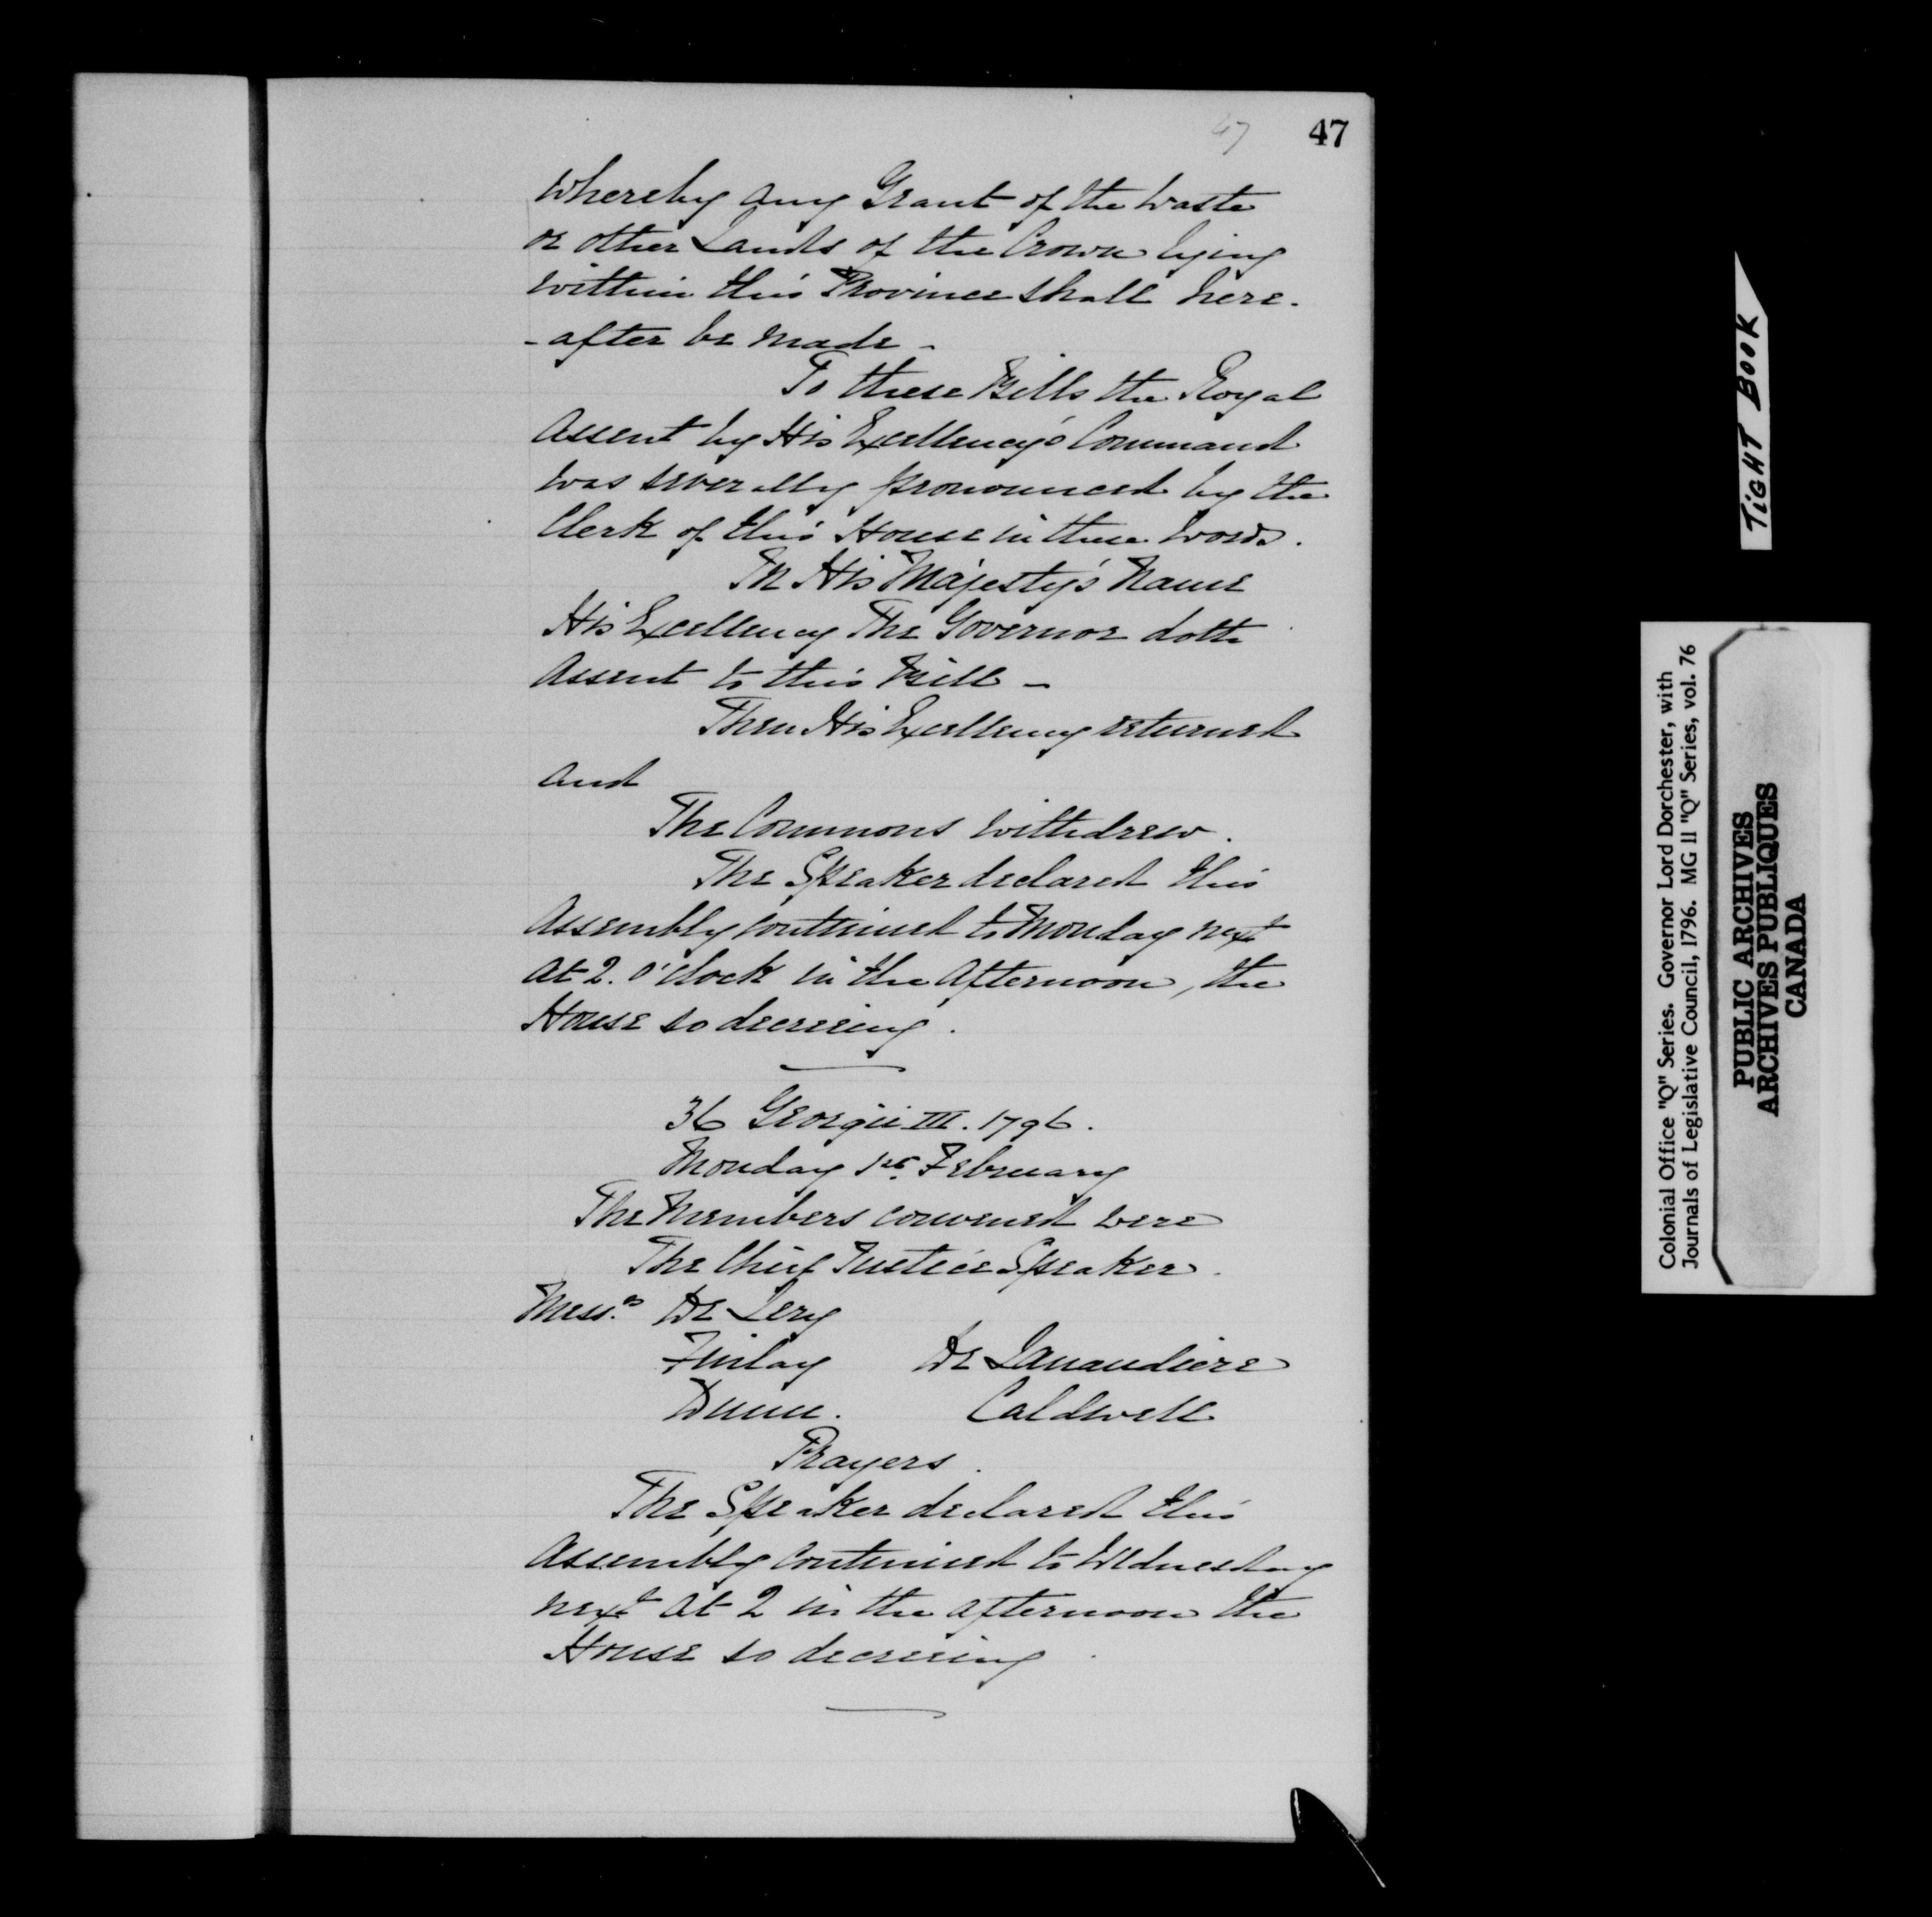 47 47
Whereby any Grant of the Waste
or other Lands of the Crown lying
within this Province shall here-
-after be made -
To these Bills the Royal
Assent by His Excellency's Command
was severally pronounced by the
Clerk of this House in these words.
In His Majesty's Name
His Excellency The Governor doth
Assent to this Bill -
Then His Excellency returned
and
The Commons withdrew.
The Speaker declared this
Assembly continued to Monday next
at 2. O'clock in the Afternoon, the
House so decreeing.
36 Georgii III. 1796.
Monday 1st. February
The Members convened were
The Chief Justice Speaker.
Mess.rs De Lery
Finlay De Lanaudiere
Dunn. Caldwell
Prayers.
The Speaker declared this
Assembly continued to Wednesday
next at 2 in the afternoon the
House so decreeing.
TIGHT BOOK
Colonial Office "Q" Series. Governor Lord Dorchester, with
Journals of Legislative Council, 1796. MG 11 "Q" Series, vol. 76
PUBLIC ARCHIVES
ARCHIVES PUBLIQUES
CANADA